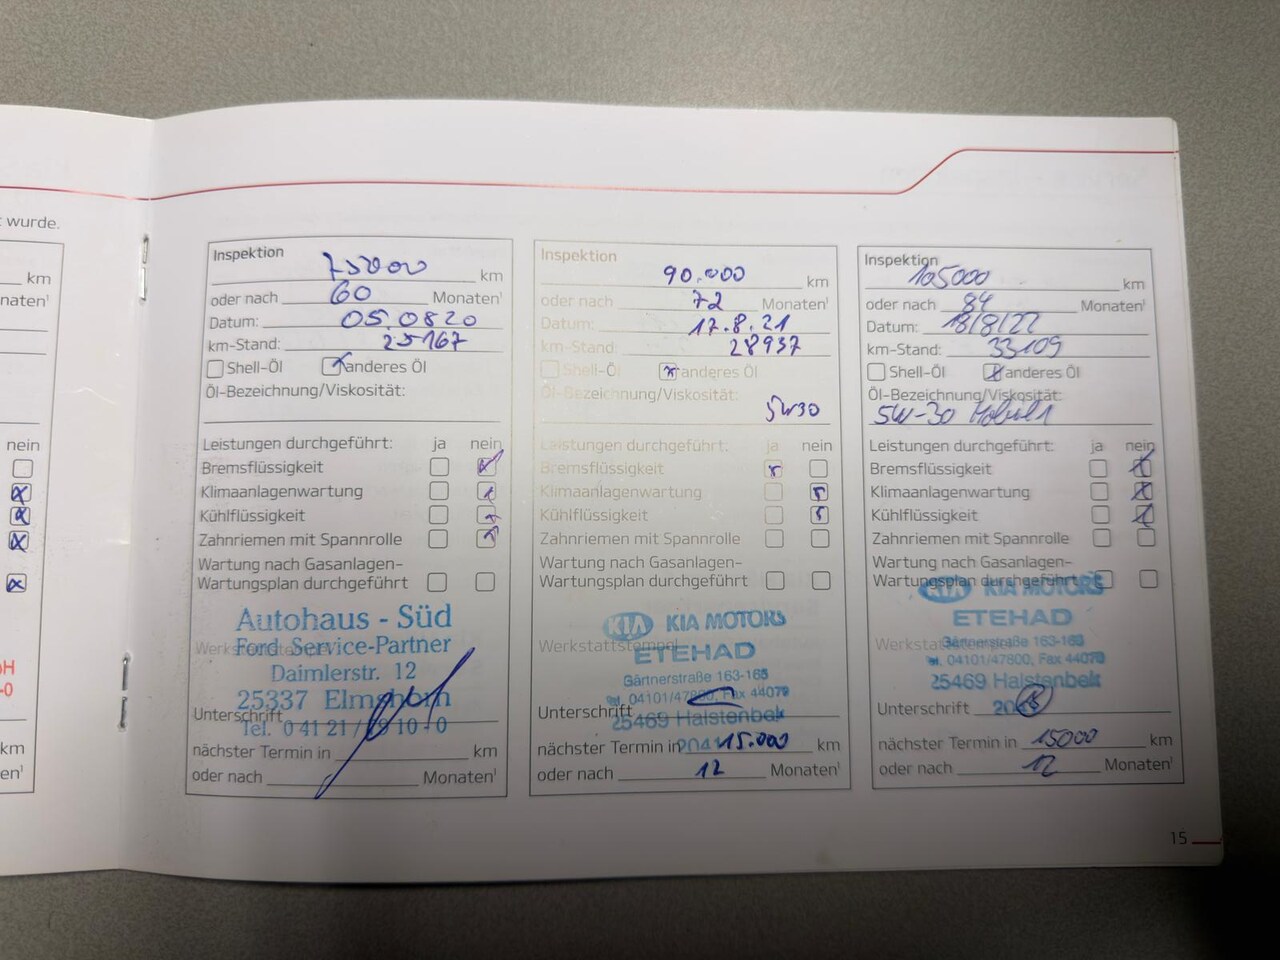 wurde.
km
nein
km
Inspektion 75000 km
oder nach 60 Monaten¹
Datum: 05.0820
km-Stand: 25167
Shell-Öl anderes Öl
Öl-Bezeichnung/Viskosität:
Leistungen durchgeführt: ja nein
Bremsflüssigkeit
Klimaanlagenwartung
Kühlflüssigkeit
Zahnriemen mit Spannrolle
Wartung nach Gasanlagen-
Wartungsplan durchgeführt
Autohaus - Süd
Ford Service-Partner
Daimlerstr. 12
25337 Elmshorn
Unterschrift
Tel. 0 41 21 / 10 - 0
nächster Termin in km
oder nach Monaten¹
Inspektion
90.000 km
oder nach 72 Monaten¹
Datum: 17.8.21
km-Stand: 28937
Shell-Öl anderes Öl
Öl-Bezeichnung/Viskosität:
5W30
Leistungen durchgeführt: ja nein
Bremsflüssigkeit
Klimaanlagenwartung
Kühlflüssigkeit
Zahnriemen mit Spannrolle
Wartung nach Gasanlagen-
Wartungsplan durchgeführt
KIA KIA MOTORS
Werkstattstempel
ETEHAD
Gärtnerstraße 163-165
Tel. 04101/47800, Fax 44079
Unterschrift
25469 Halstenbek
nächster Termin in 15.000 km
oder nach 12 Monaten¹
Inspektion
105000 km
oder nach 84 Monaten¹
Datum: 18/8/22
km-Stand: 33109
Shell-Öl anderes Öl
Öl-Bezeichnung/Viskosität:
5W-30 Mobil 1
Leistungen durchgeführt: ja nein
Bremsflüssigkeit
Klimaanlagenwartung
Kühlflüssigkeit
Zahnriemen mit Spannrolle
Wartung nach Gasanlagen-
Wartungsplan durchgeführt
KIA KIA MOTORS
ETEHAD
Werkstattstempel
Gärtnerstraße 163-165
Tel. 04101/47800, Fax 44079
25469 Halstenbek
Unterschrift
nächster Termin in 15000 km
oder nach 12 Monaten¹
15